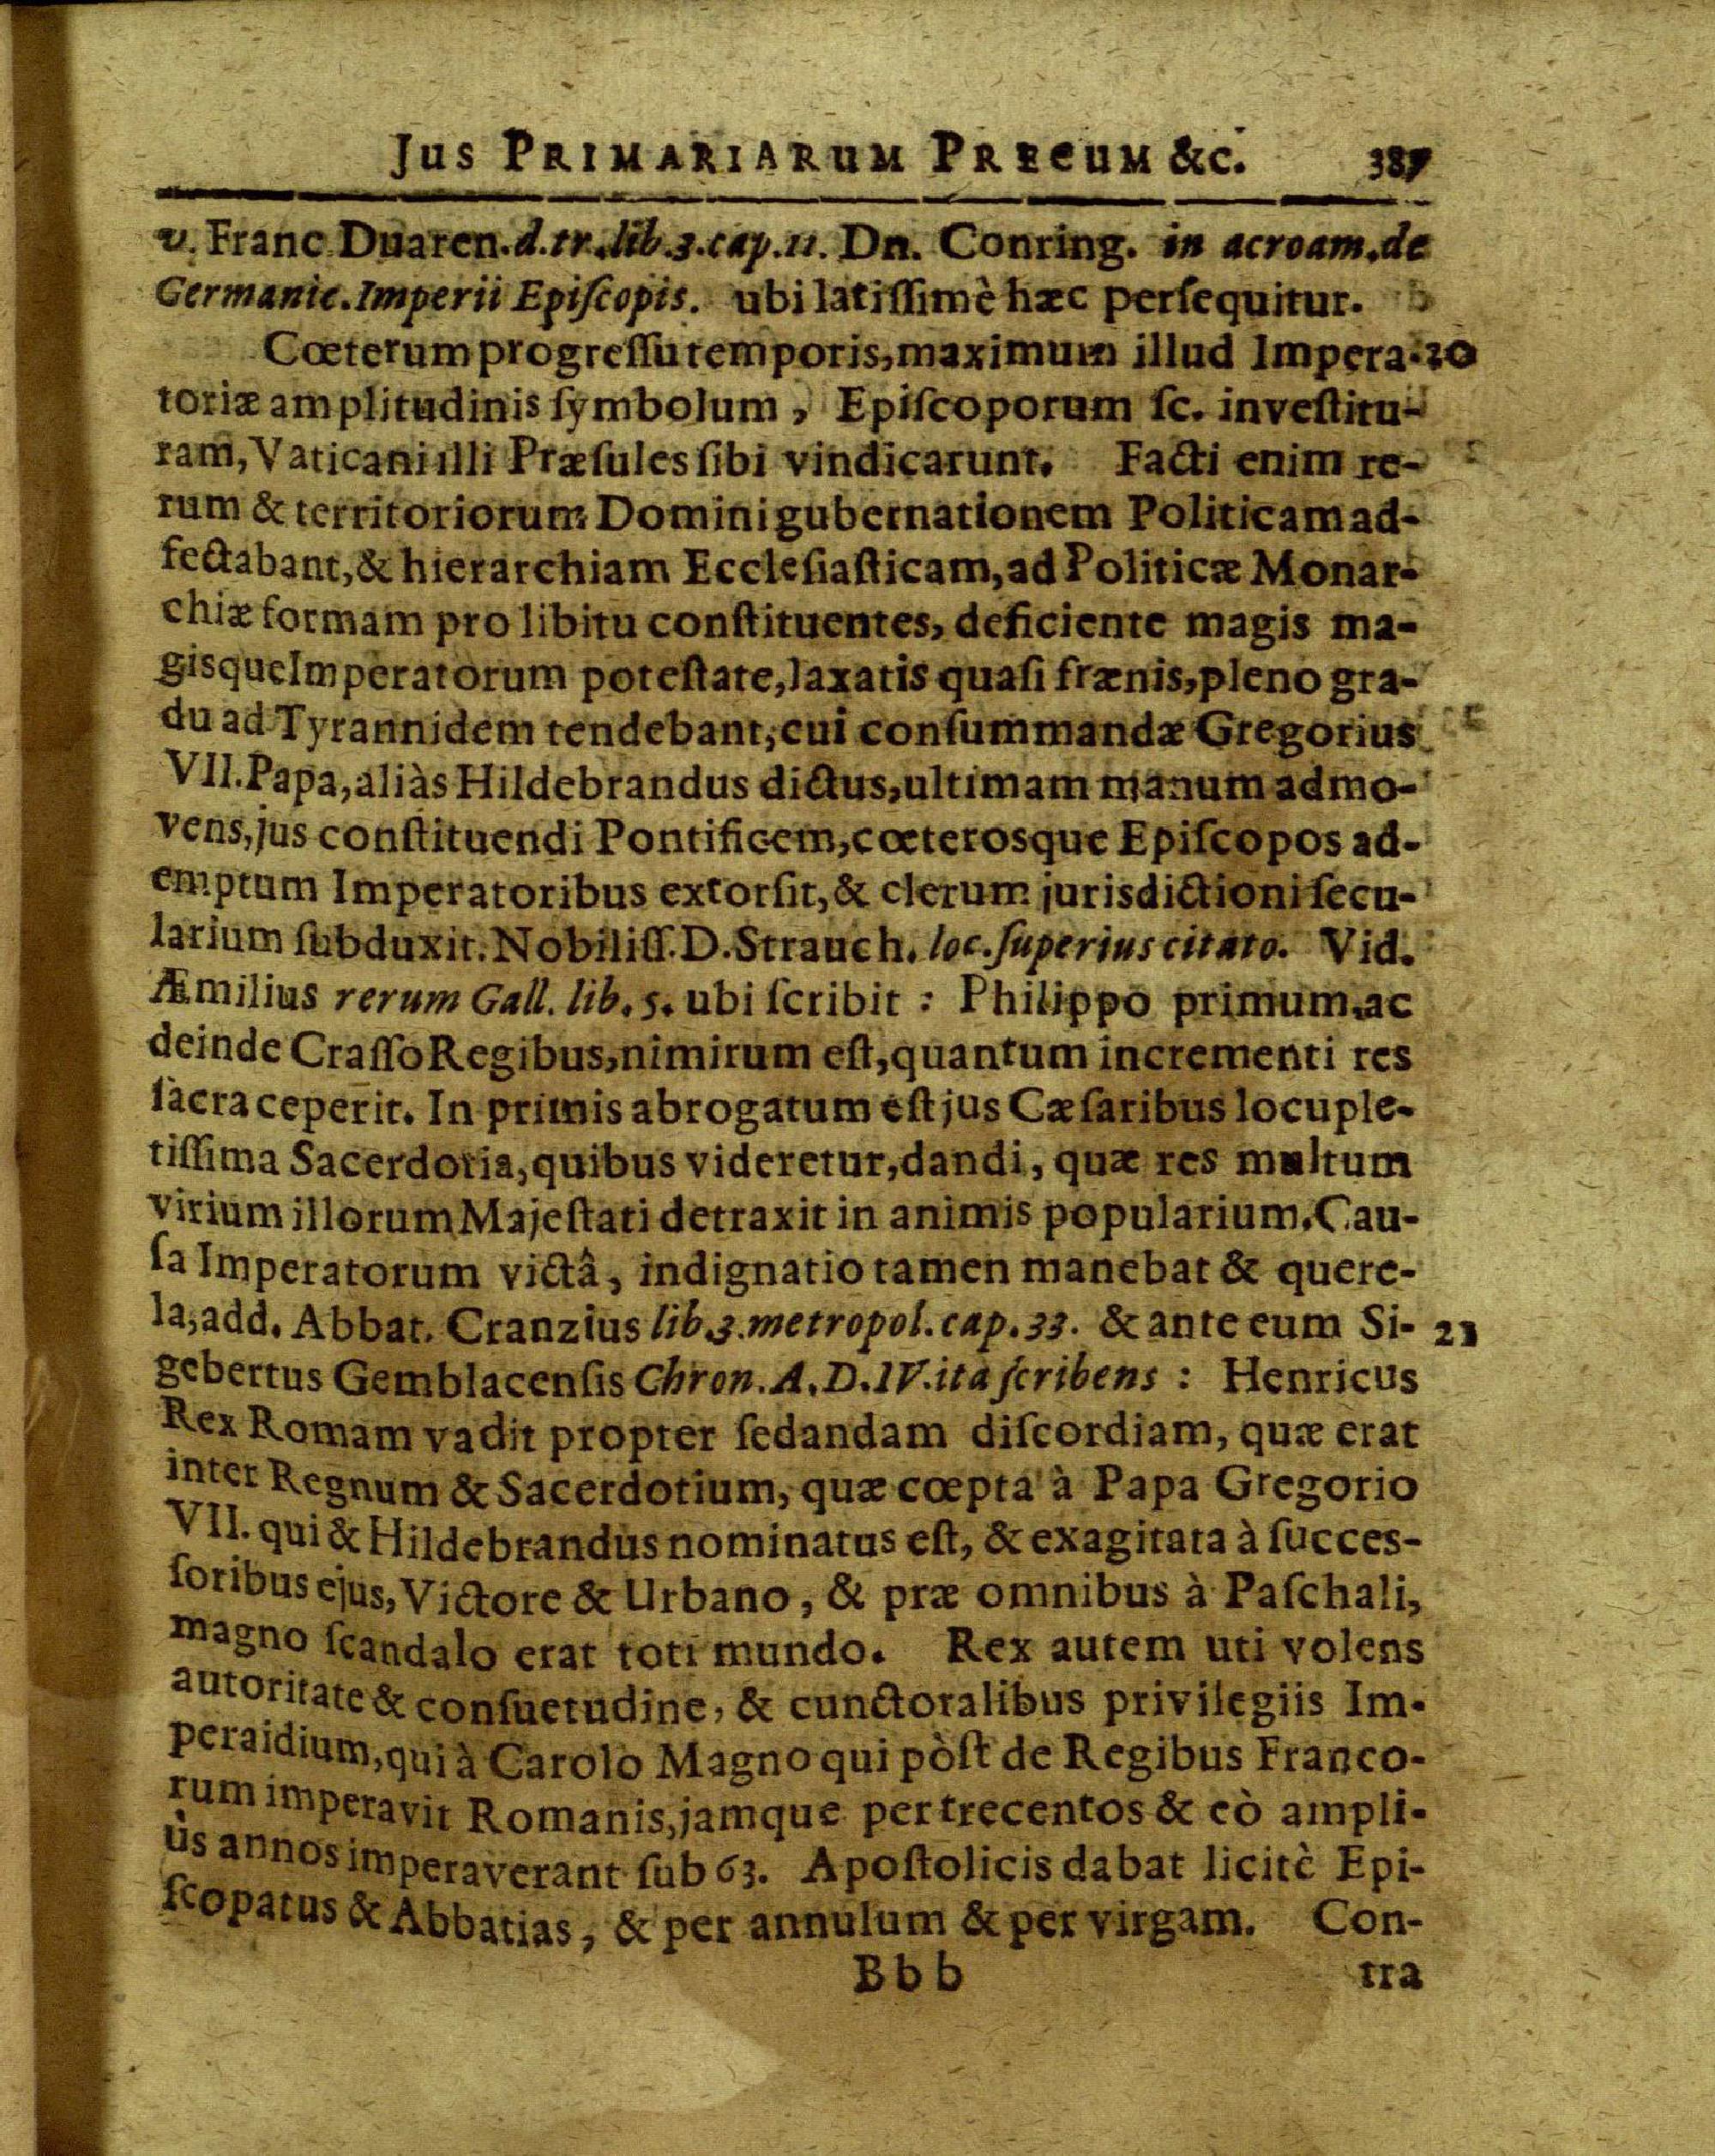 Jus PRIMARIARUM PRECUM &c. 387
v. Franc Duaren. d. tr. lib. 3. cap. 11. Dn. Conring. in acroam. de
Germanic. Imperii Epiſcopis. ubi latiſſimè hæc perſequitur.
Cœterum progreſſu temporis, maximum illud Impera- 20
toriæ amplitudinis ſymbolum, Epiſcoporum ſc. inveſtitu-
ram, Vaticani illi Præſules ſibi vindicarunt. Facti enim re-
rum & territoriorum Domini gubernationem Politicam ad-
fectabant, & hierarchiam Eccleſiaſticam, ad Politicæ Monar-
chiæ formam pro libitu conſtituentes, deficiente magis ma-
gisque Imperatorum poteſtate, laxatis quaſi frænis, pleno gra-
du ad Tyrannidem tendebant, cui conſummandæ Gregorius
VII. Papa, aliàs Hildebrandus dictus, ultimam manum admo-
vens, jus conſtituendi Pontificem, cœterosque Epiſcopos ad-
emptum Imperatoribus extorſit, & clerum jurisdictioni ſecu-
larium ſubduxit. Nobiliſſ. D. Strauch. loc. ſuperius citato. Vid.
Æmilius rerum Gall. lib. 5. ubi ſcribit : Philippo primum, ac
deinde Craſſo Regibus, nimirum eſt, quantum incrementi res
ſacra ceperit. In primis abrogatum eſt jus Cæſaribus locuple-
tiſſima Sacerdotia, quibus videretur, dandi, quæ res multum
virium illorum Majeſtati detraxit in animis popularium. Cau-
ſa Imperatorum victâ, indignatio tamen manebat & quere-
la, add. Abbat. Cranzius lib. 3. metropol. cap. 33. & ante eum Si- 21
gebertus Gemblacenſis Chron. A. D. IV. ita ſcribens : Henricus
Rex Romam vadit propter ſedandam diſcordiam, quæ erat
inter Regnum & Sacerdotium, quæ cœpta à Papa Gregorio
VII. qui & Hildebrandus nominatus eſt, & exagitata à ſucces-
ſoribus ejus, Victore & Urbano, & præ omnibus à Paſchali,
magno ſcandalo erat toti mundo. Rex autem uti volens
autoritate & conſuetudine, & cunctoralibus privilegiis Im-
peraidium, qui à Carolo Magno qui pòſt de Regibus Franco-
rum imperavit Romanis, jamque per trecentos & eò ampli-
ùs annos imperaverant ſub 63. Apoſtolicis dabat licitè Epi-
ſcopatus & Abbatias, & per annulum & per virgam. Con-
Bbb tra